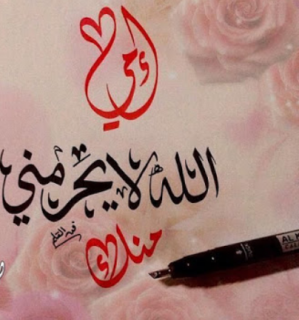 إمي
الله لا يحرمني
منك